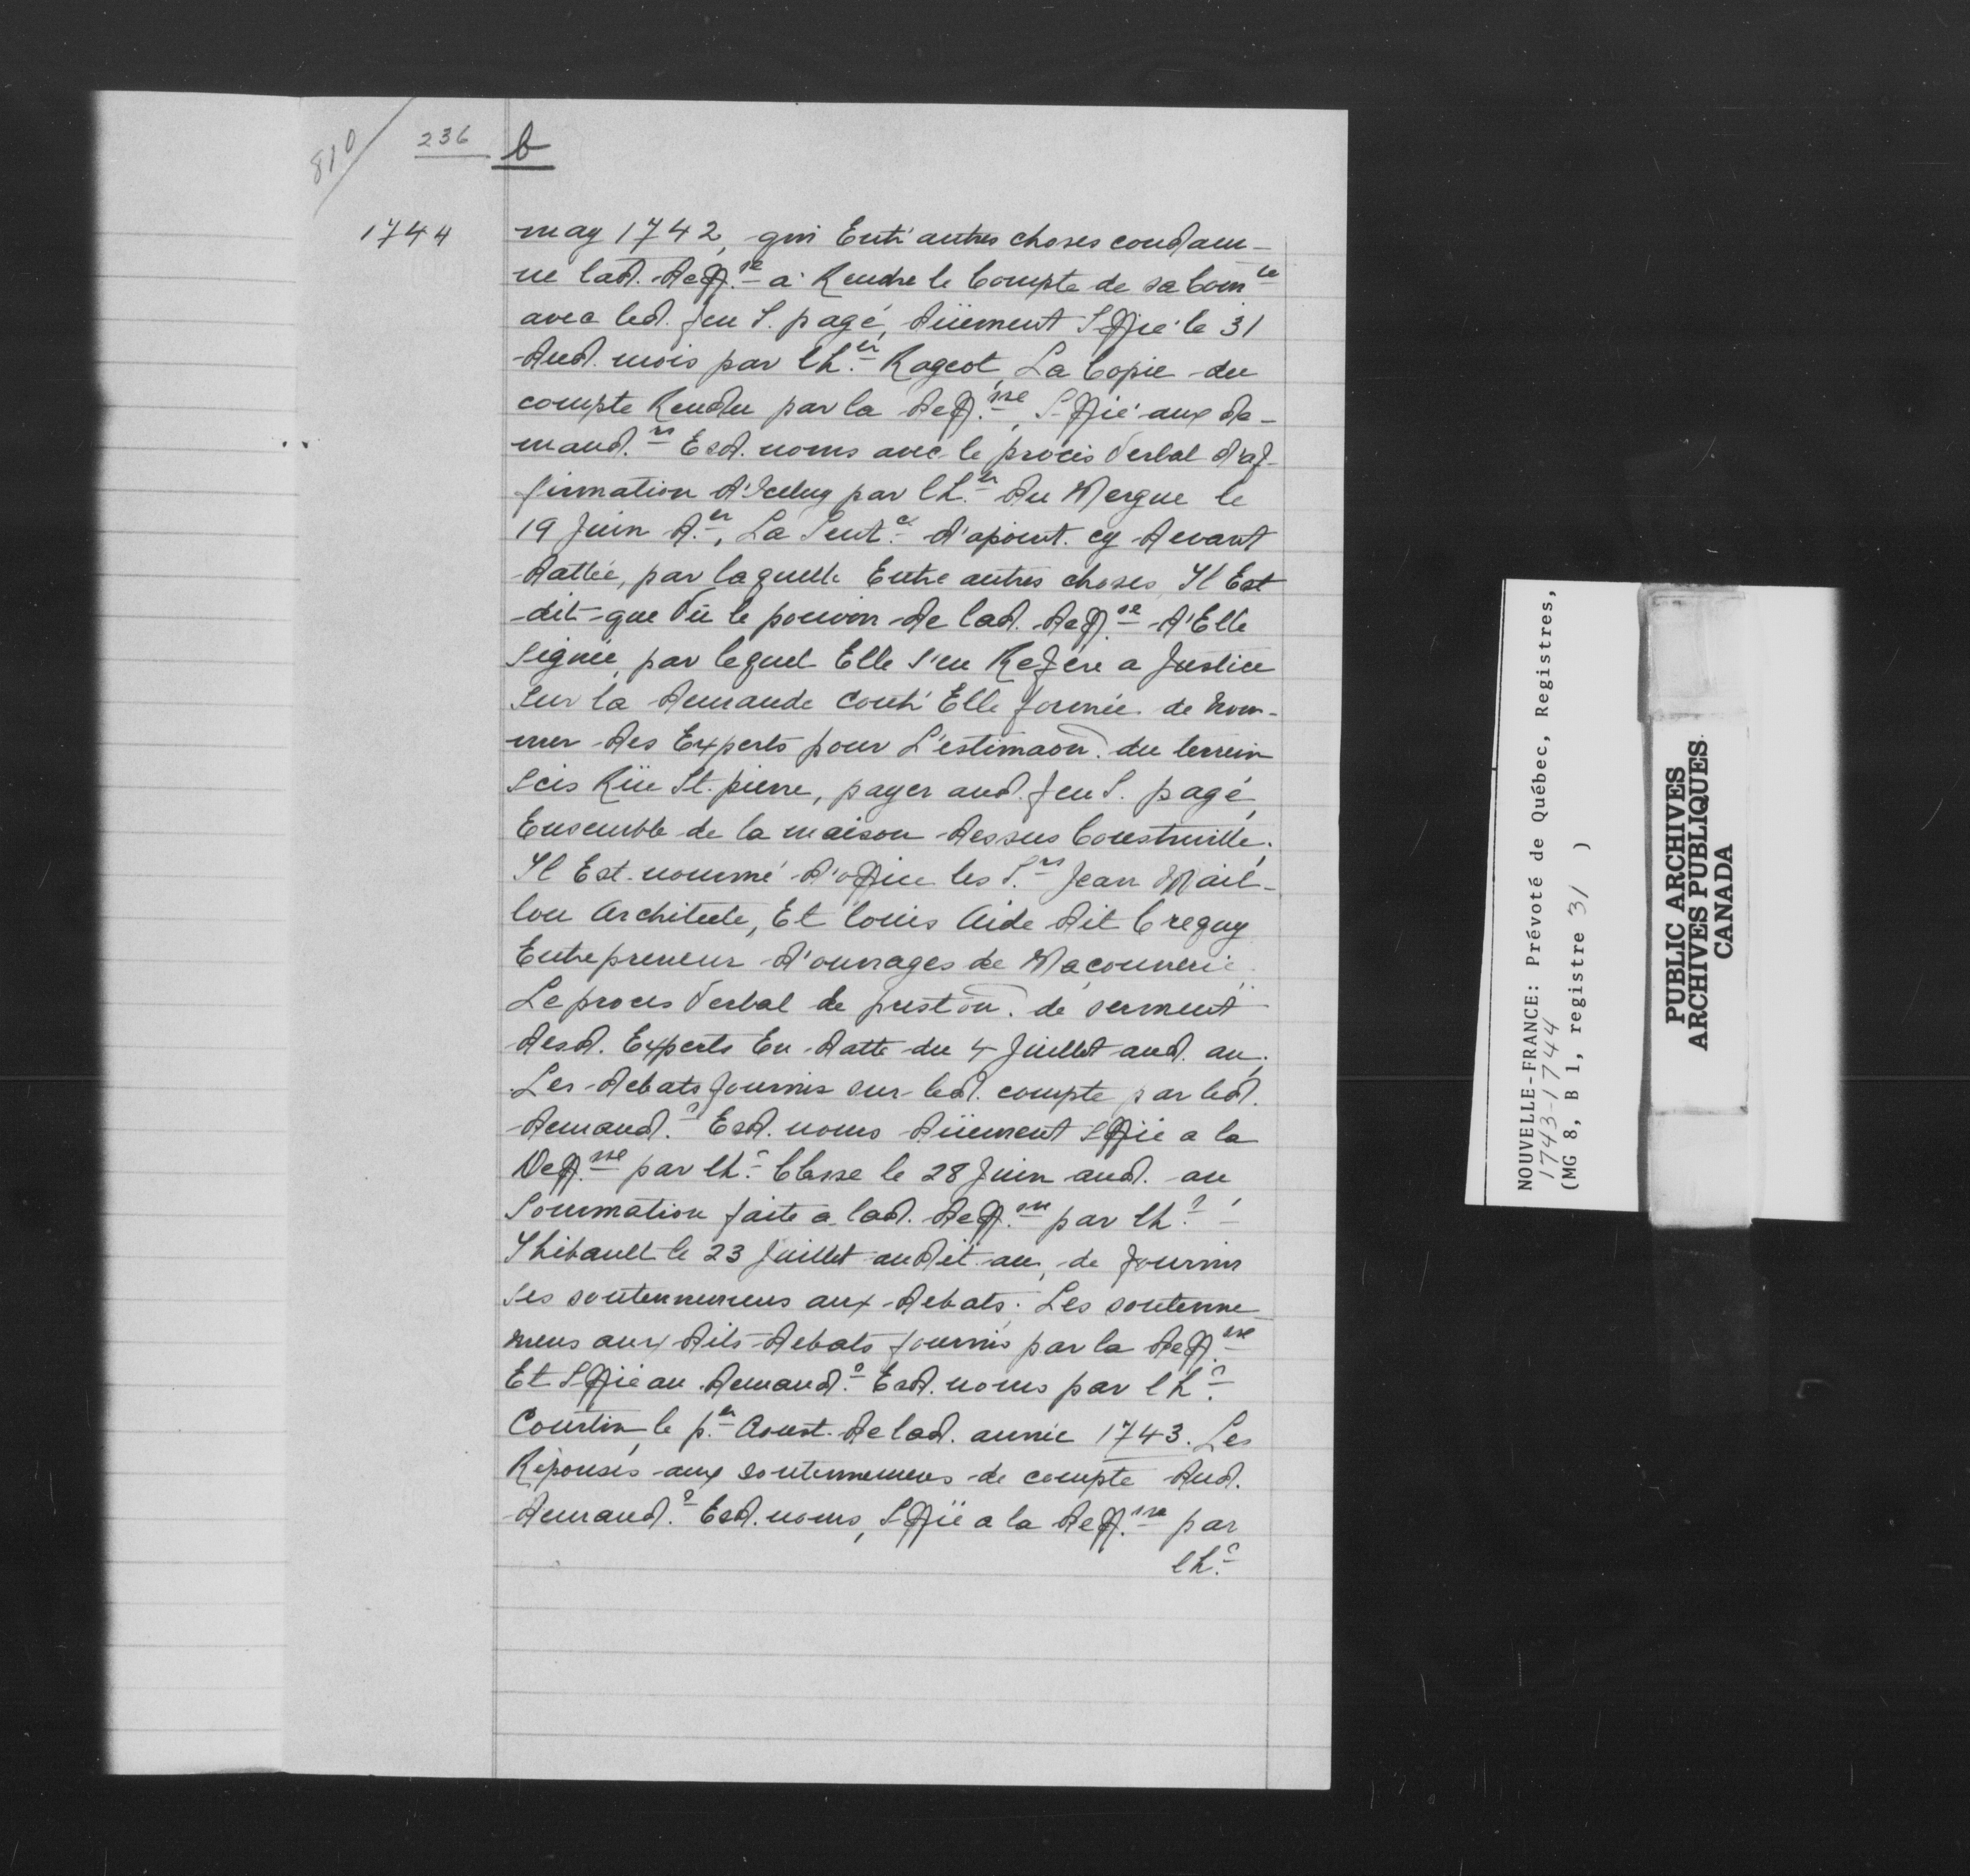 810
236 b
1744
may 1742, qui Entr'autres choses condam-
ne lad. deff.se a Rendre le Compte de sa Com.té
avec led. feu S. pagé, düement Sffié le 31
dud. mois par l'h.er Rageot, La Copie du
compte Rendu par la deff.sse, Sffié aux de-
mand.rs Esd. noms avec le procès Verbal d'af-
firmation d'Iceluy par l'h.er du Mergue le
19 Juin d.er, La Sent.ce d'apoint. cy devant
dattée, par laquelle Entre autres choses, Il Est
dit que Vû le pouvoir de lad. deff.se d'Elle
signée, par lequel Elle s'en Refère a Justice
sur la demande contr'Elle formée de nom-
mer des Experts pour L'estimaon. du terrein
scis Rüe St. pierre, payer aud. feu S. pagé,
Ensemble de la maison dessus Construitte.
Il Est nommé d'office les S.rs Jean Mail-
lou Architecte, Et louis Aide dit Crequy
Entrepreneur d'ouvrages de Maçonnerie.
Le proces Verbal de prestôn. de serment
desd. Experts En datte du 4 Juillet aud. an.
Les debats fournis sur led. compte par led.
demand.r Esd. noms düement sffié a la
Deff.sse par l'h.r Classe le 28 Juin aud. an
Sommation faite a lad. deff.sse par l'h.r
Thibault le 23 Juillet audit an, de fournir
ses soutennemens aux debats. Les soutenne
mens aux dits debats fournis par la deff.sse
Et Sffié au demand.r Esd. noms par l'h.r
Courtin, le p.er Aoust de lad. année 1743. Les
Réponses aux soutennemens de compte dud.
demand.r Esd. noms, Sffié a la deff.sse par
l'h.r
NOUVELLE-FRANCE: Prévôté de Québec, Registres,
1743-1744
(MG 8, B 1, registre 31 )
PUBLIC ARCHIVES
ARCHIVES PUBLIQUES
CANADA